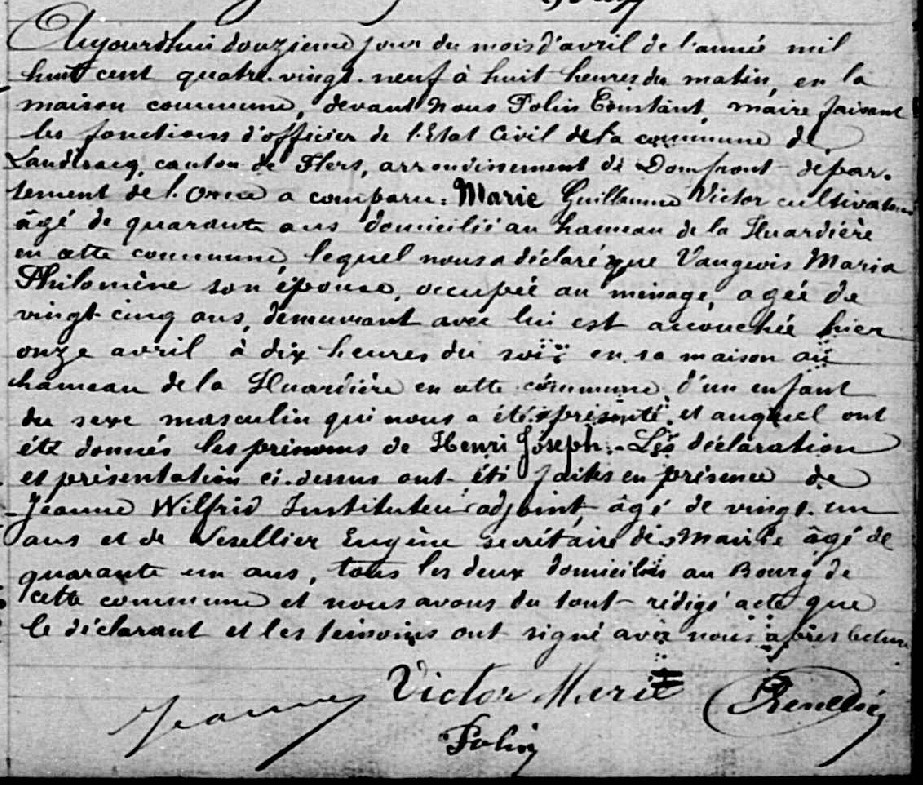 Aujourdhui douzieme jour du mois d'avril de l'année mil
huit cent quatre-vingt-neuf à huit heures du matin, en la
maison commune, devant nous Folin Constant, maire faisant
les fonctions d'officier de l'Etat Civil de la commune de
Landisacq, canton de Flers, arrondissement de Domfront dépar-
tement de l'Orne a comparu: Marie Guillaume Victor cultivateur
âgé de quarante ans domicilié au hameau de la Huardière
en cette commune, lequel nous a déclaré que Vaugeois Maria
Philomène son épouse, occupée au ménage, agée de
vingt-cinq ans, demeurant avec lui est accouchée hier
onze avril à dix heures du soir en sa maison au
hameau de la Huardière en cette commune d'un enfant
du sexe masculin qui nous a été présenté et auquel ont
été donnés les prénoms de Henri Joseph. Les déclaration
et présentation ci-dessus ont été faites en présence de
Jeanne Wilfrid Instituteur adjoint, âgé de vingt-un
ans et de Eugène secrétaire de Mairie âgé de
quarante un ans, tous les deux domiciliés au Bourg de
cette commune et nous avons du tout rédigé acte que
le déclarant et les témoins ont signé avec nous après lecture
Jeanne Victor Marie
Folin